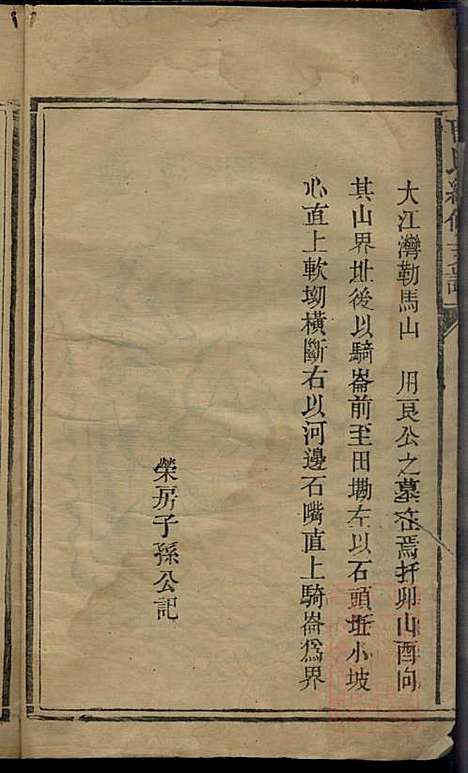 大江灣勒馬山　用良公之墓在焉扦卯山酉向
其山界址後以騎崙前至田墈左以石頭坵小坡
心直上軟坳橫斷右以河邊石嘴直上騎崙爲界
榮房子孫公記